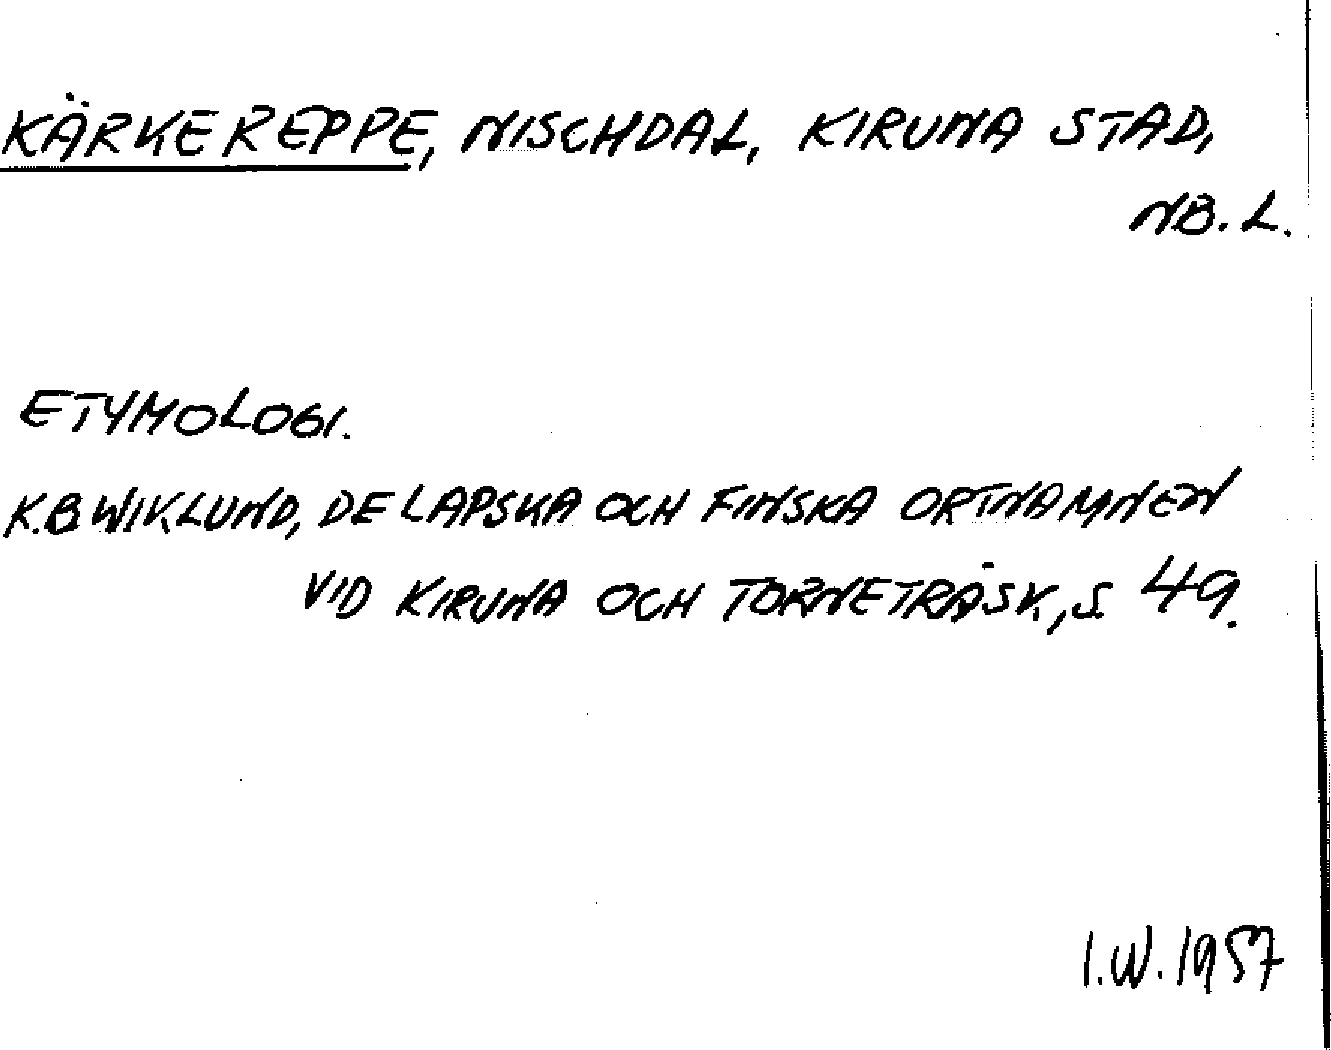 KÄRKEREPPE, NISCHDAL, KIRUNA STAD,
NB.L.
ETYMOLOGI.
K.B WIKLUND, DE LAPSKA OCH FINSKA ORTNAMNEN
VID KIRUNA OCH TORNETRÄSK, S. 49.
I.W. 1957